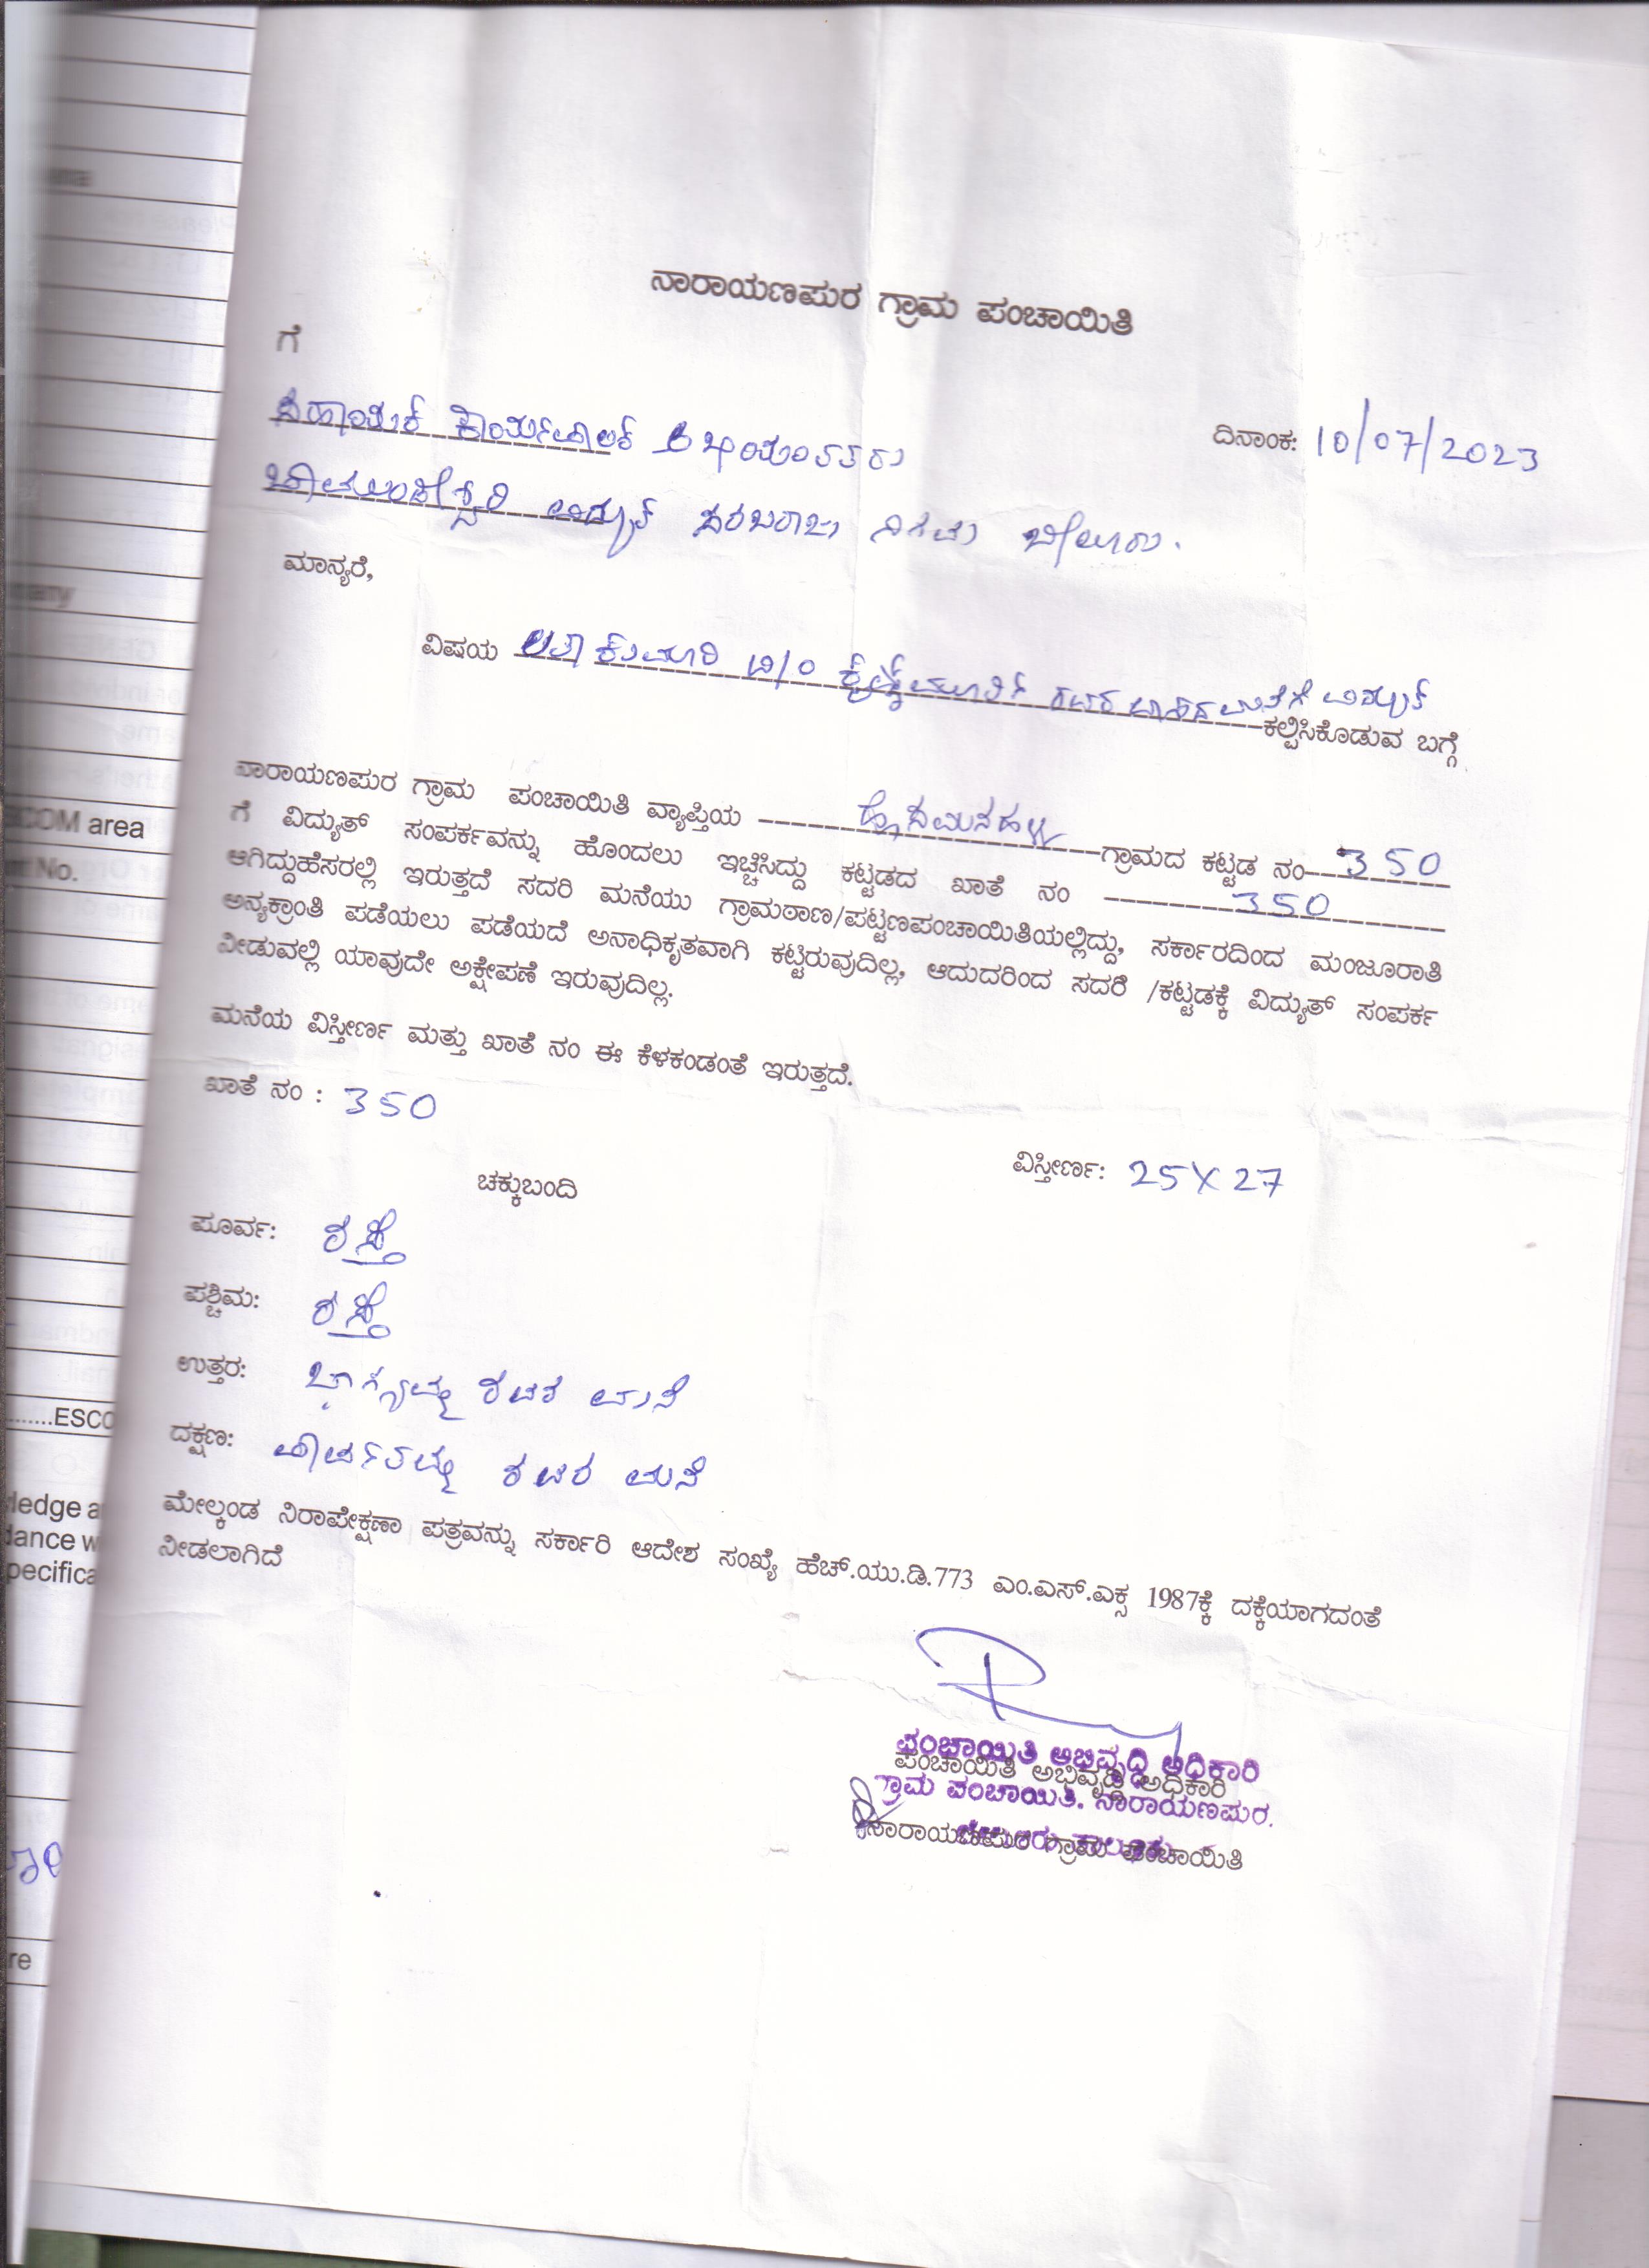 ನಾರಾಯಣಪುರ ಗ್ರಾಮ ಪಂಚಾಯಿತಿ
ಗೆ
ದಿನಾಂಕ: 10/07/2023
ಸಹಾಯಕ ಕಾರ್ಯಪಾಲಕ ಅಭಿಯಂತರರು
ಚಾಮುಂಡೇಶ್ವರಿ ವಿದ್ಯುತ್ ಸರಬರಾಜು ನಿಗಮ ಬೇಲೂರು.
ಮಾನ್ಯರೆ,
ವಿಷಯ ಲತಾಕುಮಾರಿ W/O ಕೃಷ್ಣಮೂರ್ತಿ ರವರ ವಾಸದ ಮನೆಗೆ ವಿದ್ಯುತ್
ಕಲ್ಪಿಸಿಕೊಡುವ ಬಗ್ಗೆ
ನಾರಾಯಣಪುರ ಗ್ರಾಮ ಪಂಚಾಯಿತಿ ವ್ಯಾಪ್ತಿಯ ಗ್ರಾಮದ ಕಟ್ಟಡ ನಂ 350
ಗೆ ವಿದ್ಯುತ್ ಸಂಪರ್ಕವನ್ನು ಹೊಂದಲು ಇಚ್ಚಿಸಿದ್ದು ಕಟ್ಟಡದ ಖಾತೆ ನಂ 350
ಆಗಿದ್ದುಹೆಸರಲ್ಲಿ ಇರುತ್ತದೆ ಸದರಿ ಮನೆಯು ಗ್ರಾಮಠಾಣ/ಪಟ್ಟಣಪಂಚಾಯಿತಿಯಲ್ಲಿದ್ದು, ಸರ್ಕಾರದಿಂದ ಮಂಜೂರಾತಿ
ಅನ್ಯಕ್ರಾಂತಿ ಪಡೆಯಲು ಪಡೆಯದೆ ಅನಾಧಿಕೃತವಾಗಿ ಕಟ್ಟಿರುವುದಿಲ್ಲ, ಆದುದರಿಂದ ಸದರಿ /ಕಟ್ಟಡಕ್ಕೆ ವಿದ್ಯುತ್ ಸಂಪರ್ಕ
ನೀಡುವಲ್ಲಿ ಯಾವುದೇ ಅಕ್ಷೇಪಣೆ ಇರುವುದಿಲ್ಲ.
ಮನೆಯ ವಿಸ್ತೀರ್ಣ ಮತ್ತು ಖಾತೆ ನಂ ಈ ಕೆಳಕಂಡಂತೆ ಇರುತ್ತದೆ.
ಖಾತೆ ನಂ : 350
ವಿಸ್ತೀರ್ಣ: 25X27
ಚಕ್ಕುಬಂದಿ
ಪೂರ್ವ: ರಸ್ತೆ
ಪಶ್ಚಿಮ: ರಸ್ತೆ
ಉತ್ತರ: ಭಾಗ್ಯಮ್ಮ ರವರ ಮನೆ
ದಕ್ಷಣ: ಪಾರ್ವತಮ್ಮ ರವರ ಮನೆ
ಮೇಲ್ಕಂಡ ನಿರಾಪೇಕ್ಷಣಾ ಪತ್ರವನ್ನು ಸರ್ಕಾರಿ ಆದೇಶ ಸಂಖ್ಯೆ ಹೆಚ್.ಯು.ಡಿ.773 ಎಂ.ಎಸ್.ಎಕ್ಸ 1987ಕ್ಕೆ ದಕ್ಕೆಯಾಗದಂತೆ
ನೀಡಲಾಗಿದೆ
ಪಂಚಾಯಿತಿ ಅಭಿವೃದ್ಧಿ ಅಧಿಕಾರಿ
ಪಂಚಾಯಿತಿ ಅಭಿವೃದ್ಧಿ ಅಧಿಕಾರಿ
ಗ್ರಾಮ ಪಂಚಾಯಿತಿ. ನಾರಾಯಣಪುರ.
ನಾರಾಯಣಪುರ ಗ್ರಾಮ ಪಂಚಾಯಿತಿ
COM area
No.
ESCO
ledge a
dance w
pecifica
re